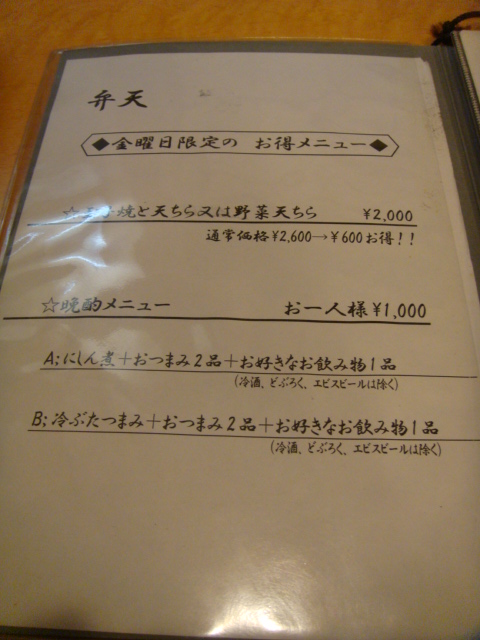 弁天
◆金曜日限定の お得メニュー◆
焼と天ちら又は野菜天ちら ¥2,000
通常価格¥2,600→¥600お得!!
☆晩酌メニュー お一人様¥1,000
A:にしん煮+おつまみ2品+お好きなお飲み物1品
(冷酒、どぶろく、エビスビールは除く)
B:冷ぶたつまみ+おつまみ2品+お好きなお飲み物1品
(冷酒、どぶろく、エビスビールは除く)